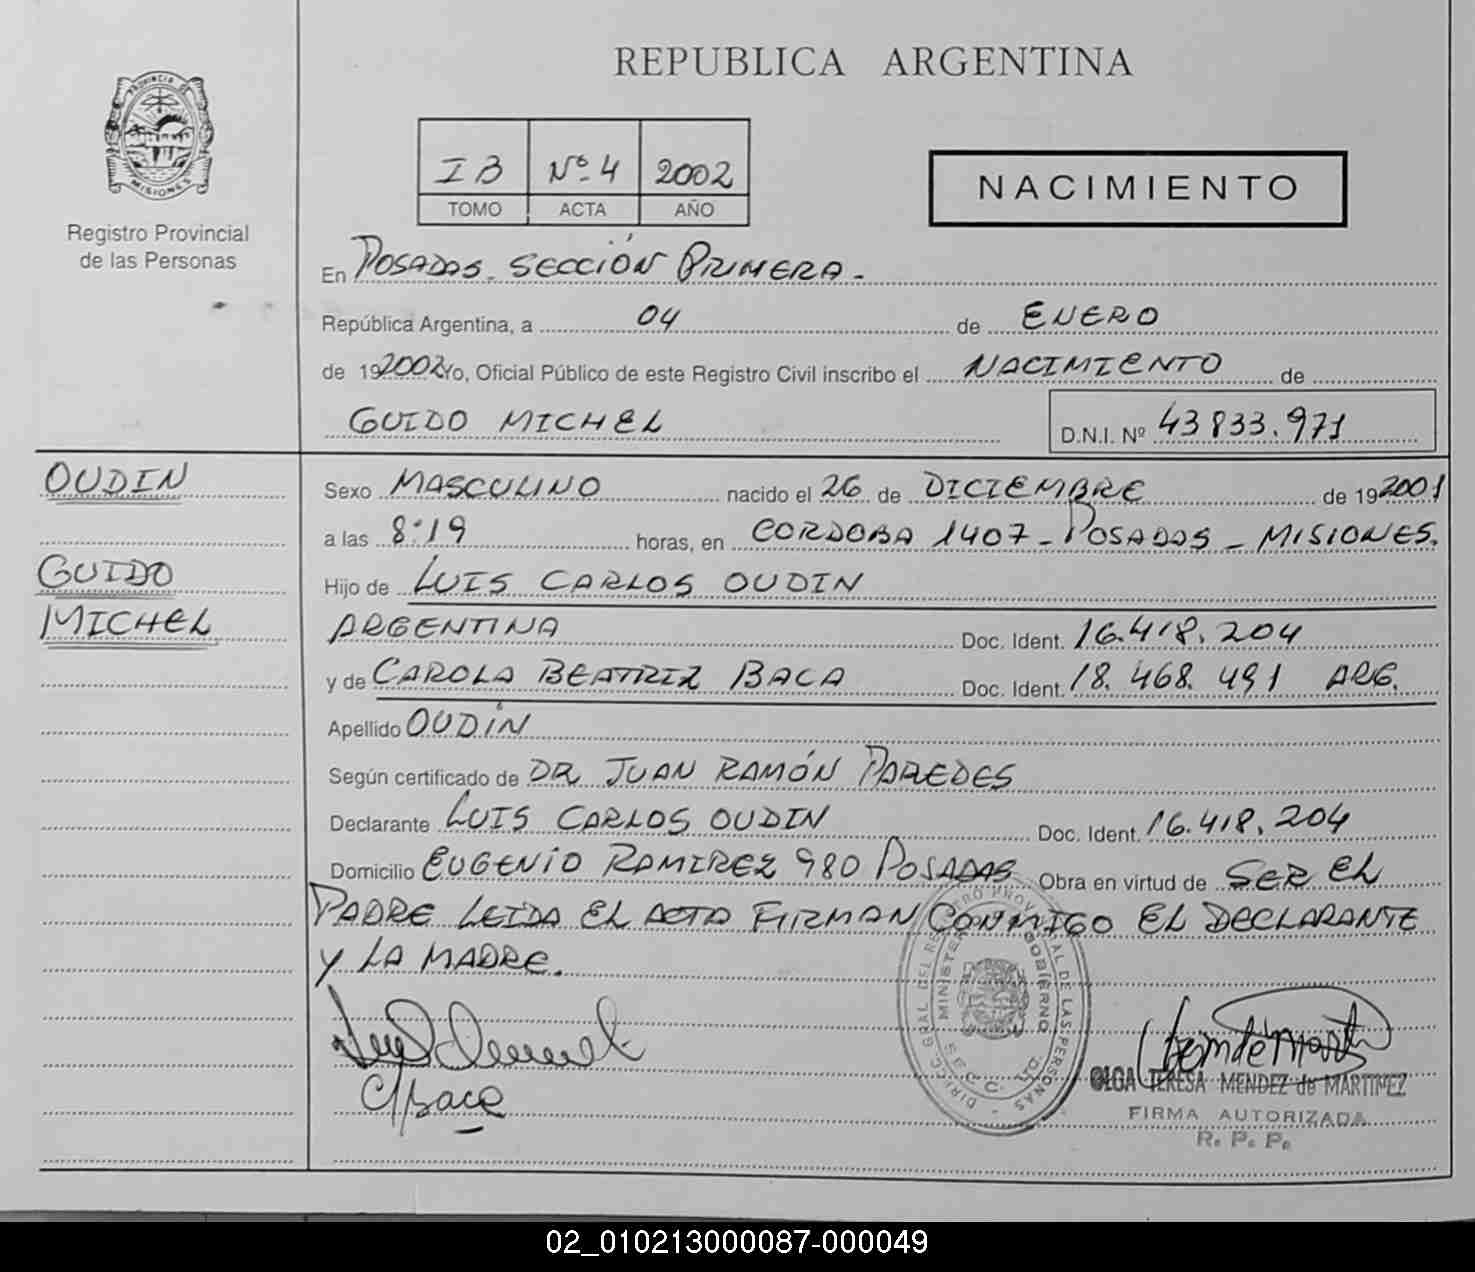 REPUBLICA ARGENTINA
PROVINCIA DE
MISIONES
Registro Provincial
de las Personas
I B Nº 4 2002
TOMO ACTA AÑO
NACIMIENTO
En POSADAS. SECCIÓN PRIMERA.-
República Argentina, a 04 de ENERO
de 192002 Yo, Oficial Público de este Registro Civil inscribo el NACIMIENTO de
GUIDO MICHEL D.N.I. Nº 43833.971
OUDIN
Sexo MASCULINO nacido el 26 de DICIEMBRE de 192001
a las 8:19 horas, en CORDOBA 1407 - POSADAS - MISIONES.
GUIDO
Hijo de LUIS CARLOS OUDIN
MICHEL
ARGENTINA Doc. Ident. 16.418.204
y de CAROLA BEATRIZ BACA Doc. Ident. 18.468.491 ARG.
Apellido OUDÍN
Según certificado de DR JUAN RAMÓN PAREDES
Declarante LUIS CARLOS OUDIN Doc. Ident. 16.418.204
Domicilio EUGENIO RAMIREZ 980 POSADAS Obra en virtud de SER EL
PADRE LEIDA EL ACTA FIRMAN CONMIGO EL DECLARANTE
Y LA MADRE.
CBaca
OLGA TERESA MENDEZ de MARTINEZ
FIRMA AUTORIZADA
R. P. P.
02_010213000087-000049